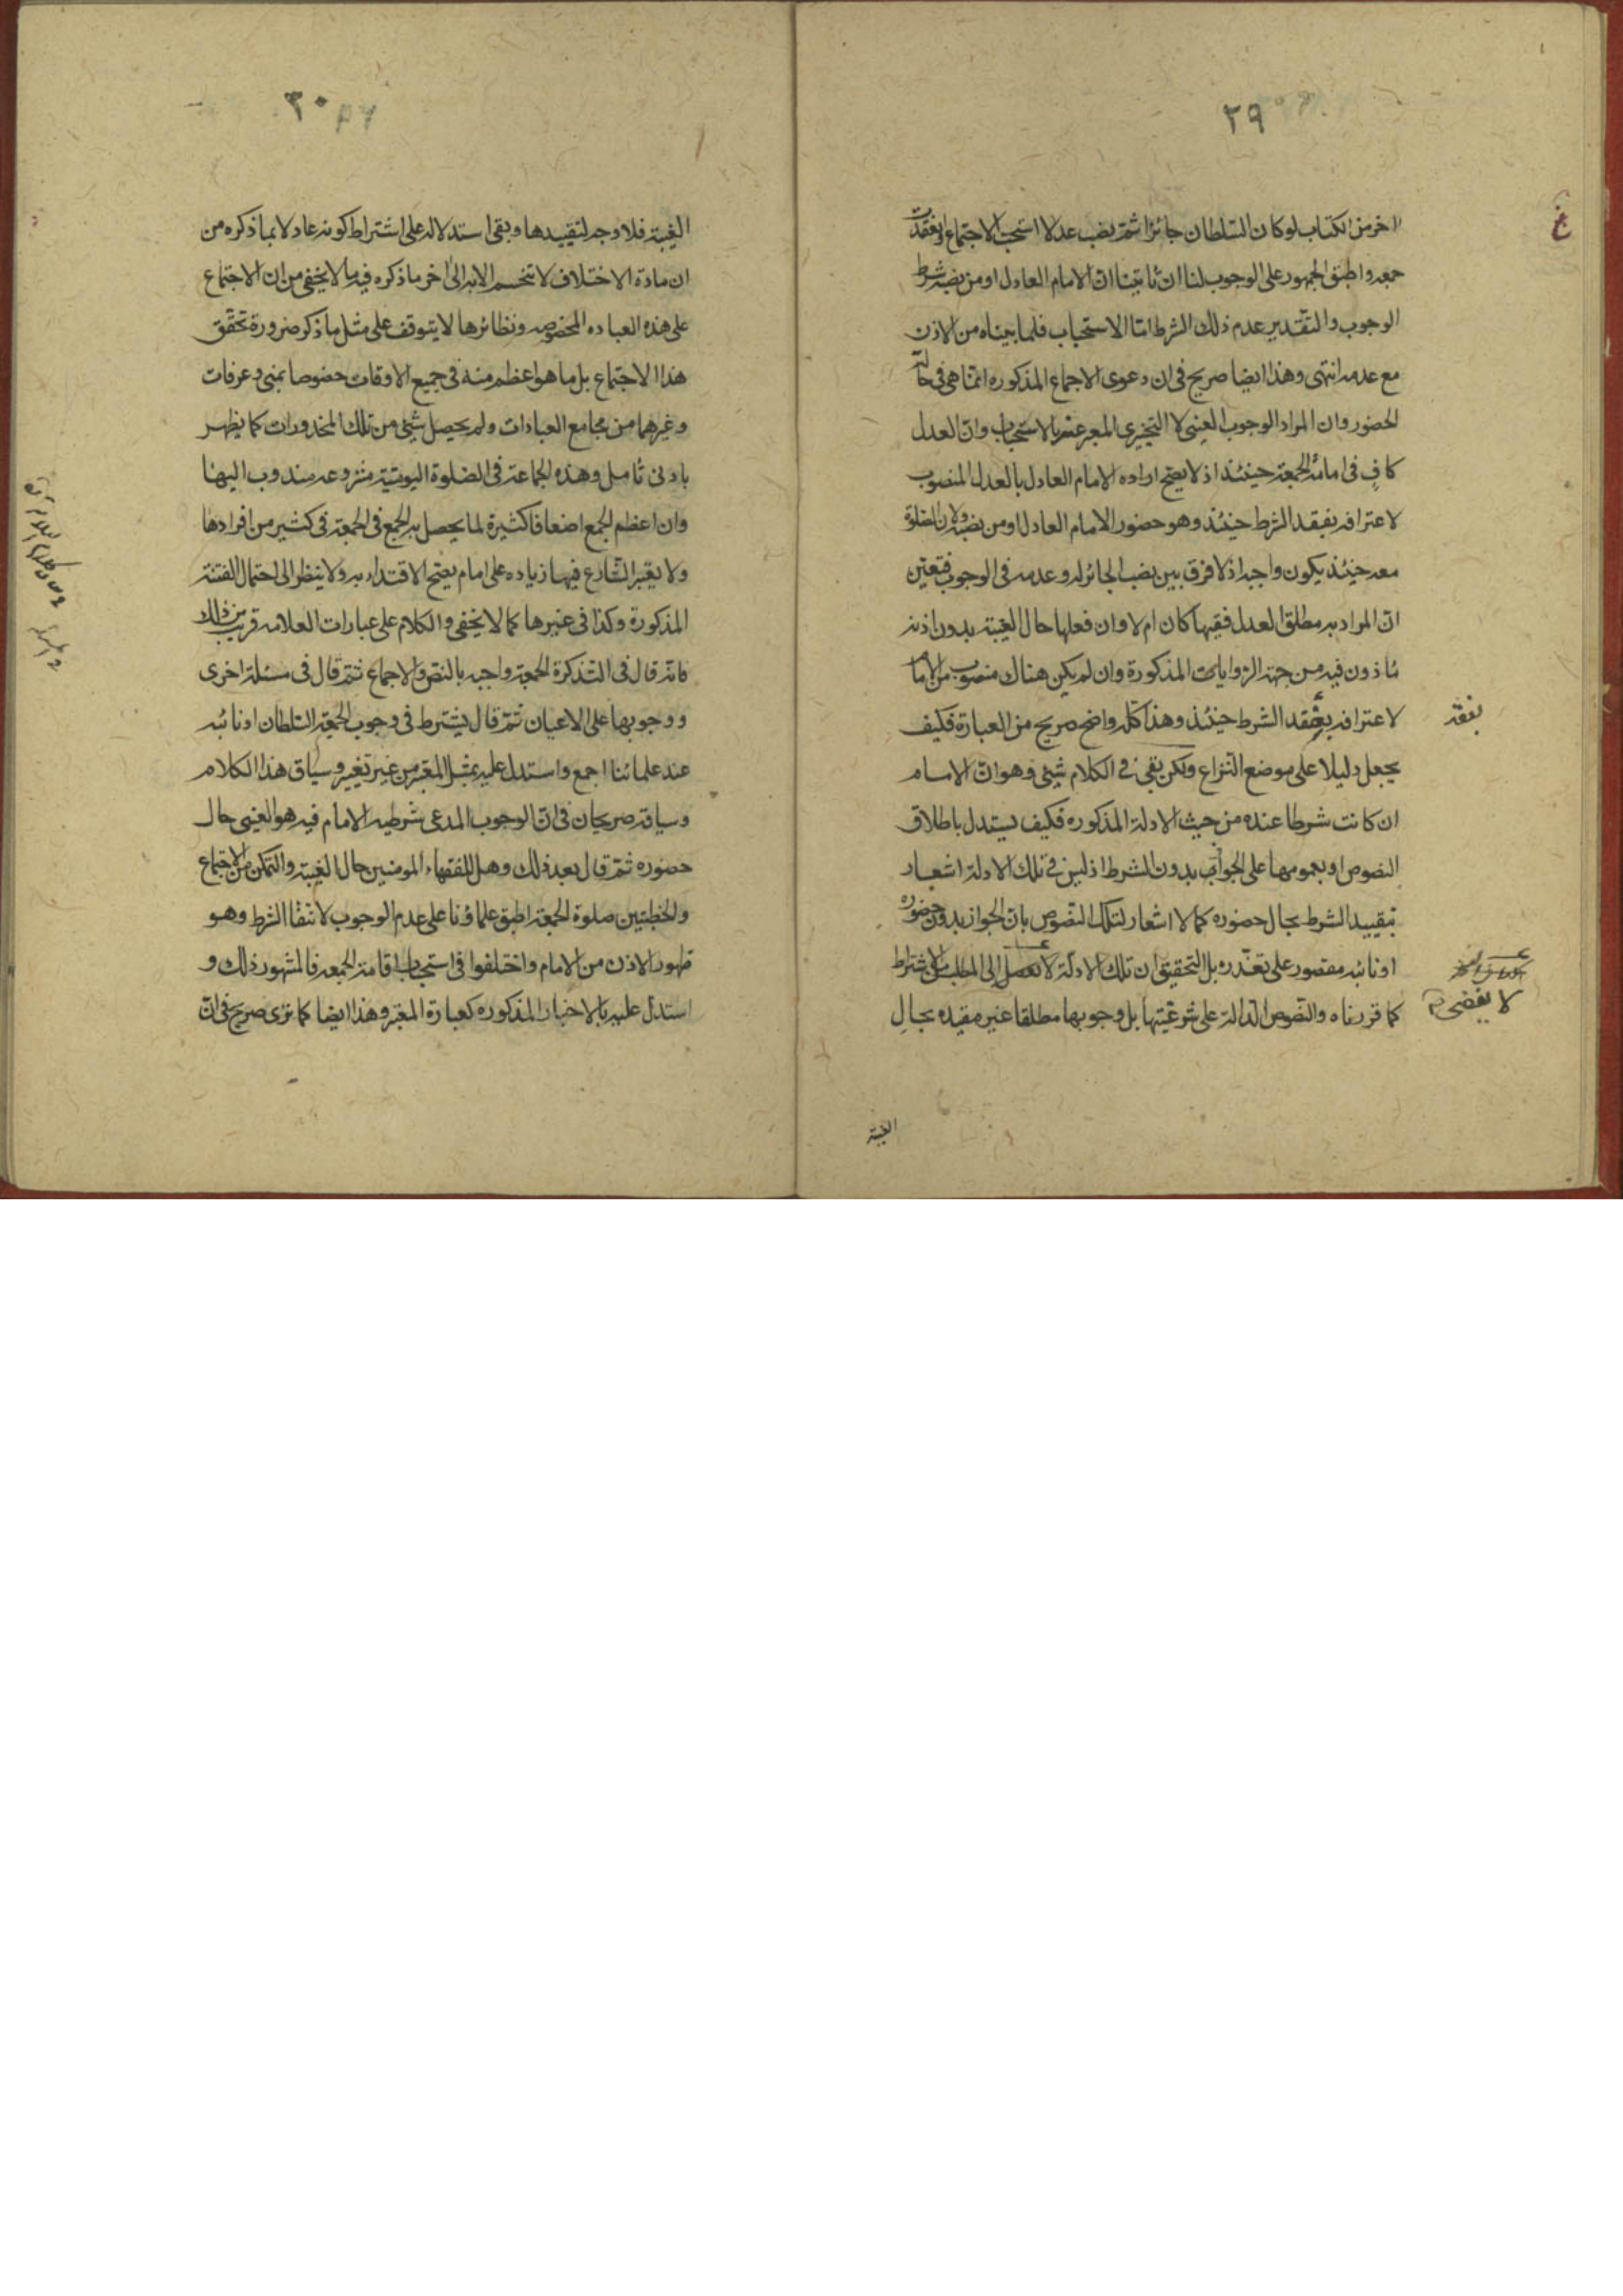 ٢٩
اخر من الكتاب لو كان السلطان جائرا ثم نصب عدلا استحب الاجتماع وانعقدت
جمعه واطبق الجمهور على الوجوب لنا ان ثابتنا ان الامام العادل او من نصبه شرط
الوجوب والتقدير عدم ذلك الشرط امّا الاستحباب فلما بيناه من الاذن
مع عدمه انتهى وهذا ايضا صريح فى ان دعوى الاجماع المذكوره انمّا هى فى حالة
الحضور وان المراد الوجوب العينى لا التخييرى المعبر عنه بالاستحباب وانّ العدل
كافٍ فى امامة الجمعة حينئذ اذ لا يصح اراده الامام العادل بالعدل المنصوب
لاعترافه بفقد الشرط حينئذ وهو حضور الامام العادل او من نصبه ولان الصلوة
معه حينئذ يكون واجبا اذ لا فرق بين نصب الجائر له وعدمه فى الوجوب فتعيّن
انّ المراد به مطلق العدل فقيها كان ام لا وان فعلها حال الغيبة بدون اذنه
مأذون فيه من جهة الروايات المذكورة وان لم يكن هناك منصوب من الامام
لاعترافه بفقد الشرط حينئذ وهذا كله واضح صريح من العبارة فكيف
بفقد
يجعل دليلا على موضع النزاع ولكن بقى فى الكلام شيئ وهو انّ الامام
ان كانت شرطا عنده من حيث الادلة المذكوره فكيف يستدل باطلاق
النصوص او بعمومها على الجواب بدون الشرط اذ ليس فى تلك الادلة اشعار
بتقييد الشرط بحال حضوره كما لا اشعار لتلك النصوص بانّ الجواز بدون حضوره
او نائبه مقصور على تعذره بل التحقيق ان تلك الادلّة لا تصل الى المطلب من الاشتراط
لا يفضى
كما قررناه والنصوص الدالة على شرعيّتها بل وجوبها مطلقا غير مقيده بحال
الغيبة
٣٠
الغيبة فلا وجه لتقييدها وبقى استدلاله على اشتراط كونه عادلا بما ذكره من
ان مادة الاختلاف لا تنحسم الا به الى اخر ما ذكره فيه ما لا يخفى من ان الاجتماع
على هذه العباده المخصوصه ونظائرها لا يتوقف على مثل ما ذكر ضرورة تحقق
هذا الاجتماع بل ما هو اعظم منه فى جميع الاوقات خصوصا بمنى وعرفات
وغيرهما من مجامع العبادات ولم يحصل شيئ من تلك المحذورات كما يظهر
بادنى تأمل وهذه الجماعة فى الصلوة اليومية مشروعه مندوب اليها
وان اعظم الجمع اضعافا كثيرة لما يحصل به الجمع فى الجمعة فى كثير من افرادها
ولا يعتبر الشارع فيها زياده على امام يصح الاقتداء به ولا ينظر الى احتمال الفتنة
المذكورة وكذا فى غيرها كما لا يخفى والكلام على عبارات العلامه قريب من ذلك
فانه قال فى التذكرة الجمعة واجبه بالنص والاجماع ثم قال فى مسئلة اخرى
ووجوبها على الاعيان ثمّ قال يشترط فى وجوب الجمعة السلطان او نائبه
عند علمائنا اجمع واستدل عليه بمثل المعتبر من غير تغيير وسياق هذا الكلام
وسياقه صريحان فى انّ الوجوب المدعى شرطيه الامام فيه هو العينى حال
حضوره ثمّ قال بعد ذلك وهل للفقهاء المومنين حال الغيبة والتمكن من الاجتماع
والخطبتين صلوة الجمعة اطبق علماؤنا على عدم الوجوب لانتفا الشرط وهو
ظهور الاذن من الامام واختلفوا فى استحباب اقامة الجمعه فالمشهور ذلك و
استدل عليه بالاخبار المذكوره كعبارة المعتبر وهذا ايضا كما ترى صريح فى انّ